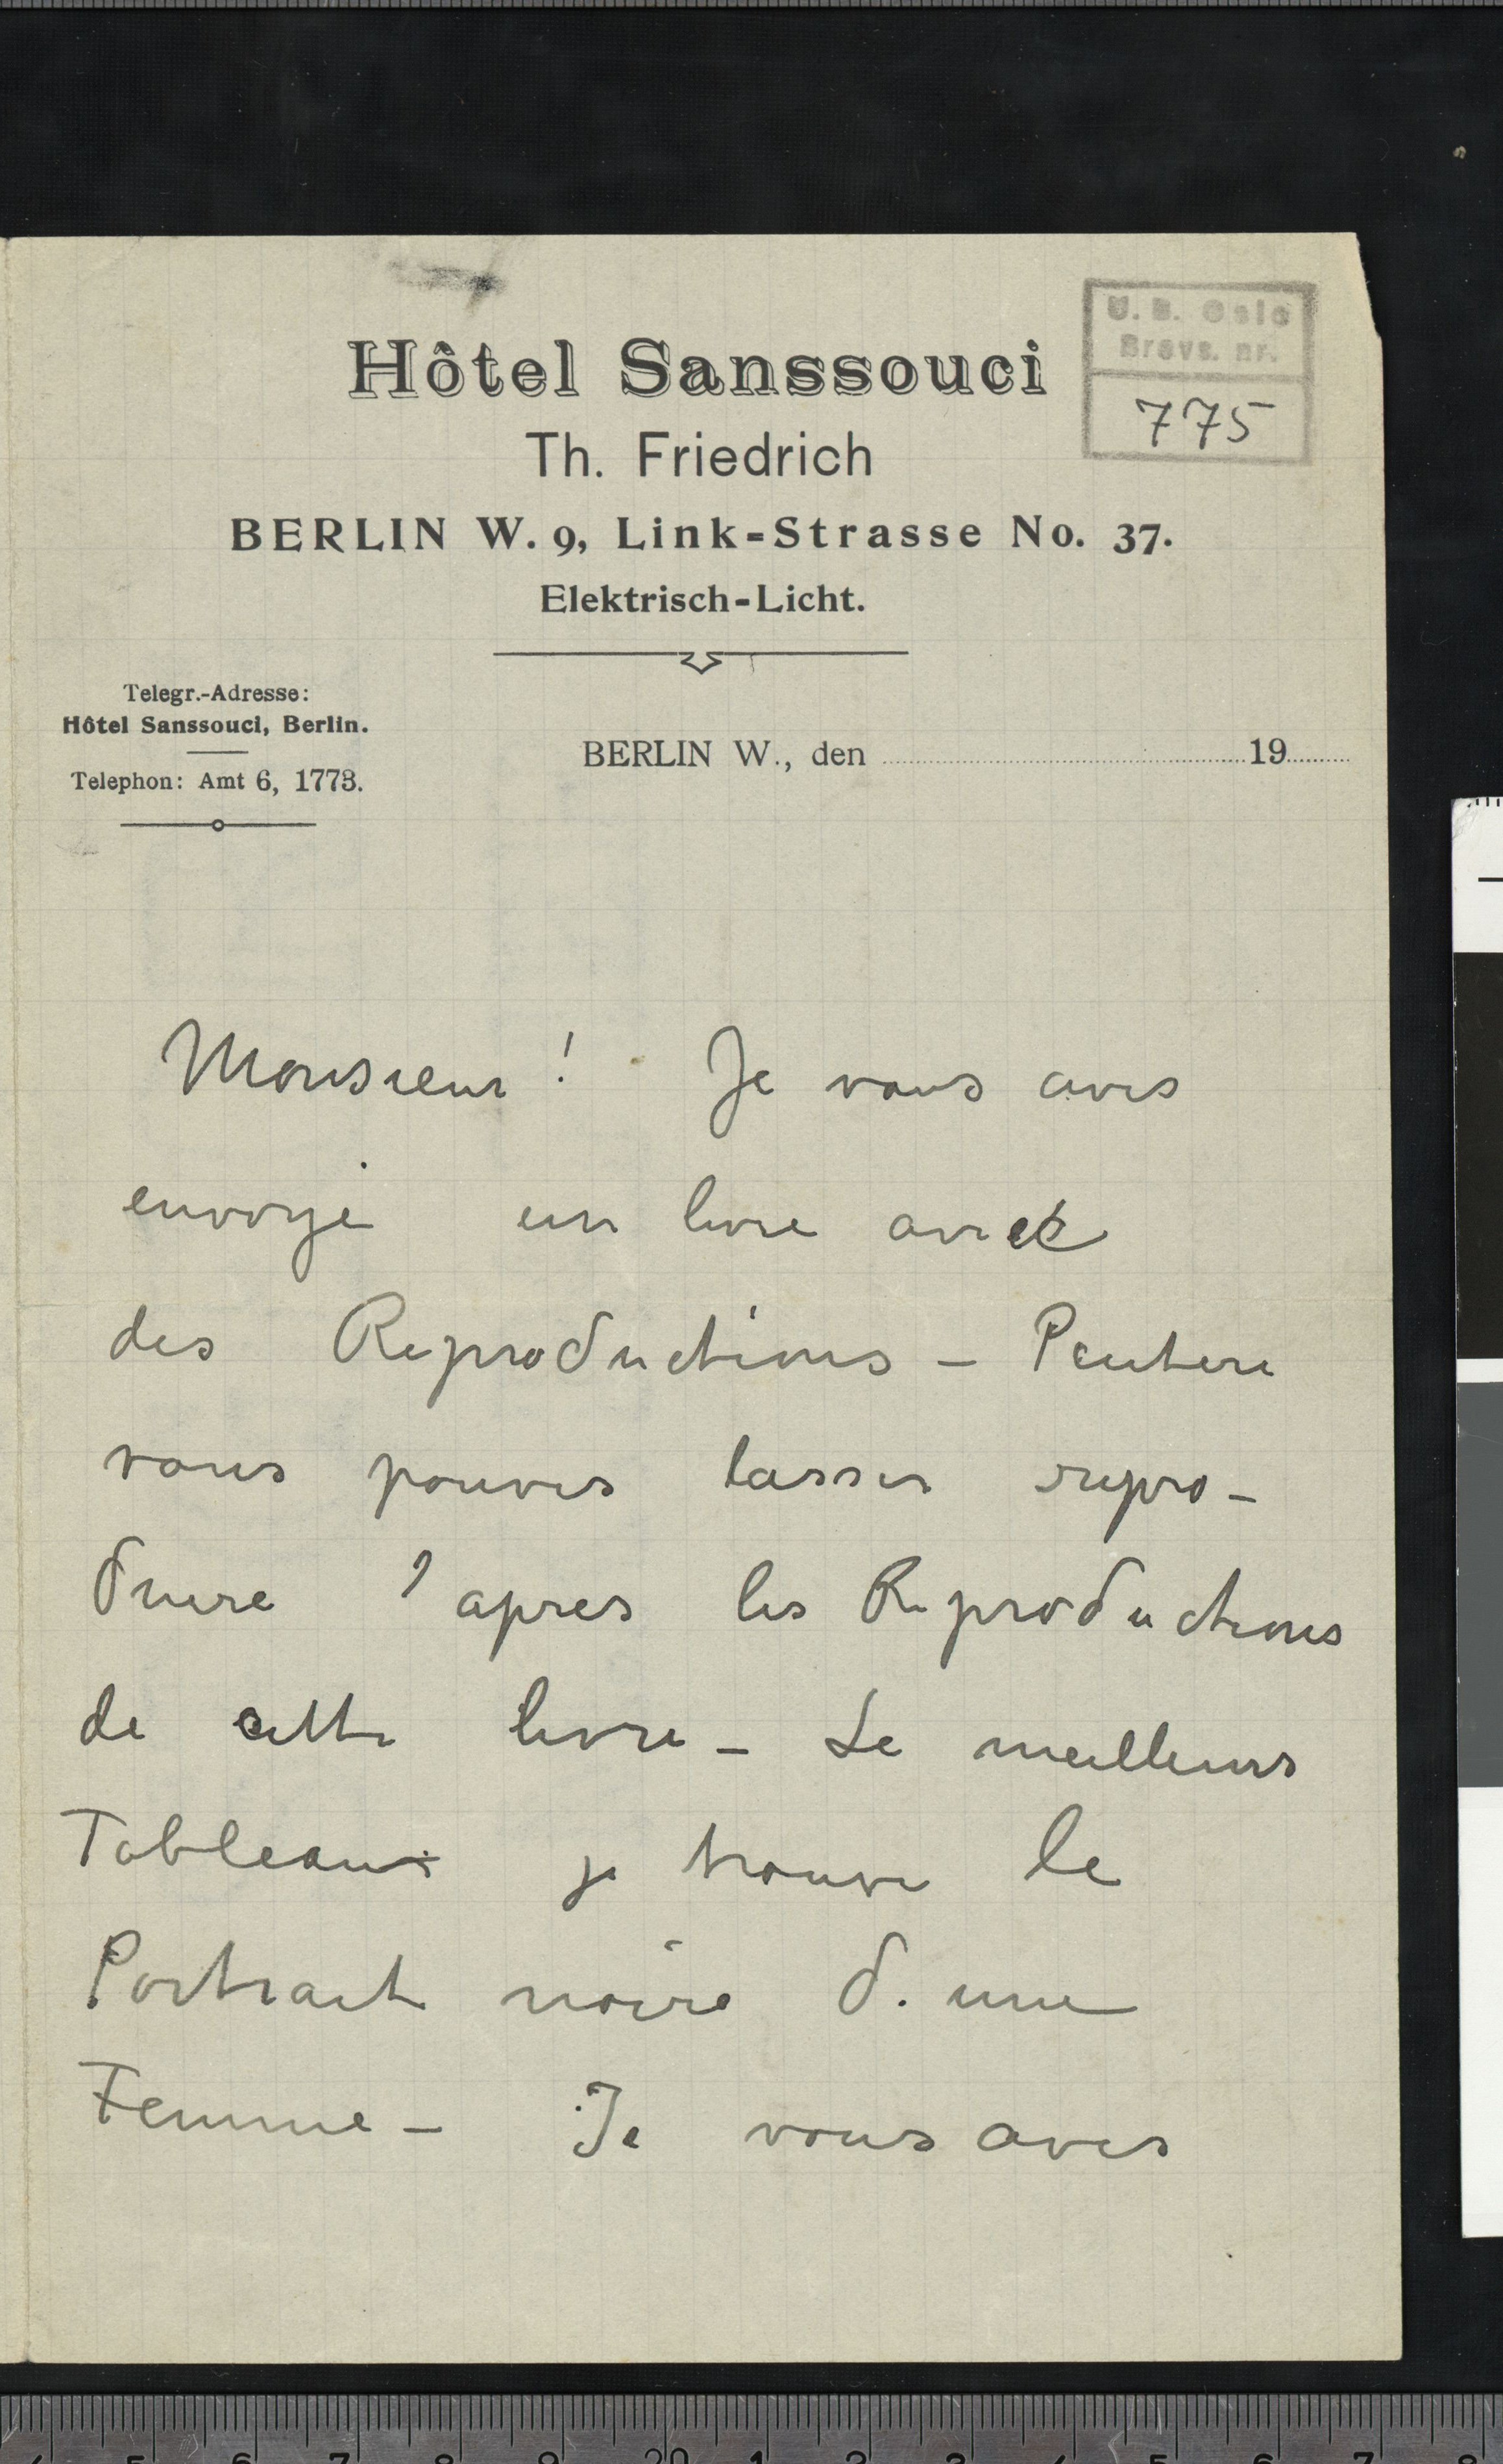 Hôtel Sanssouci
U. B. Oslo
Brevs. nr.
775
Th. Friedrich
BERLIN W. 9, Link-Strasse No. 37.
Elektrisch-Licht.
Telegr.-Adresse:
Hôtel Sanssouci, Berlin.
Telephon: Amt 6, 1773.
BERLIN W., den 19
Monsieur ! Je vous aves
envoyé un livre avec
des Reproductions – Peutere
vous pouves lasser repro-
duire d'apres les Reproductions
de cette livre – Le meilleurs
Tableaux je trouve le
Portrait noire d. une
Femme – Je vous aves